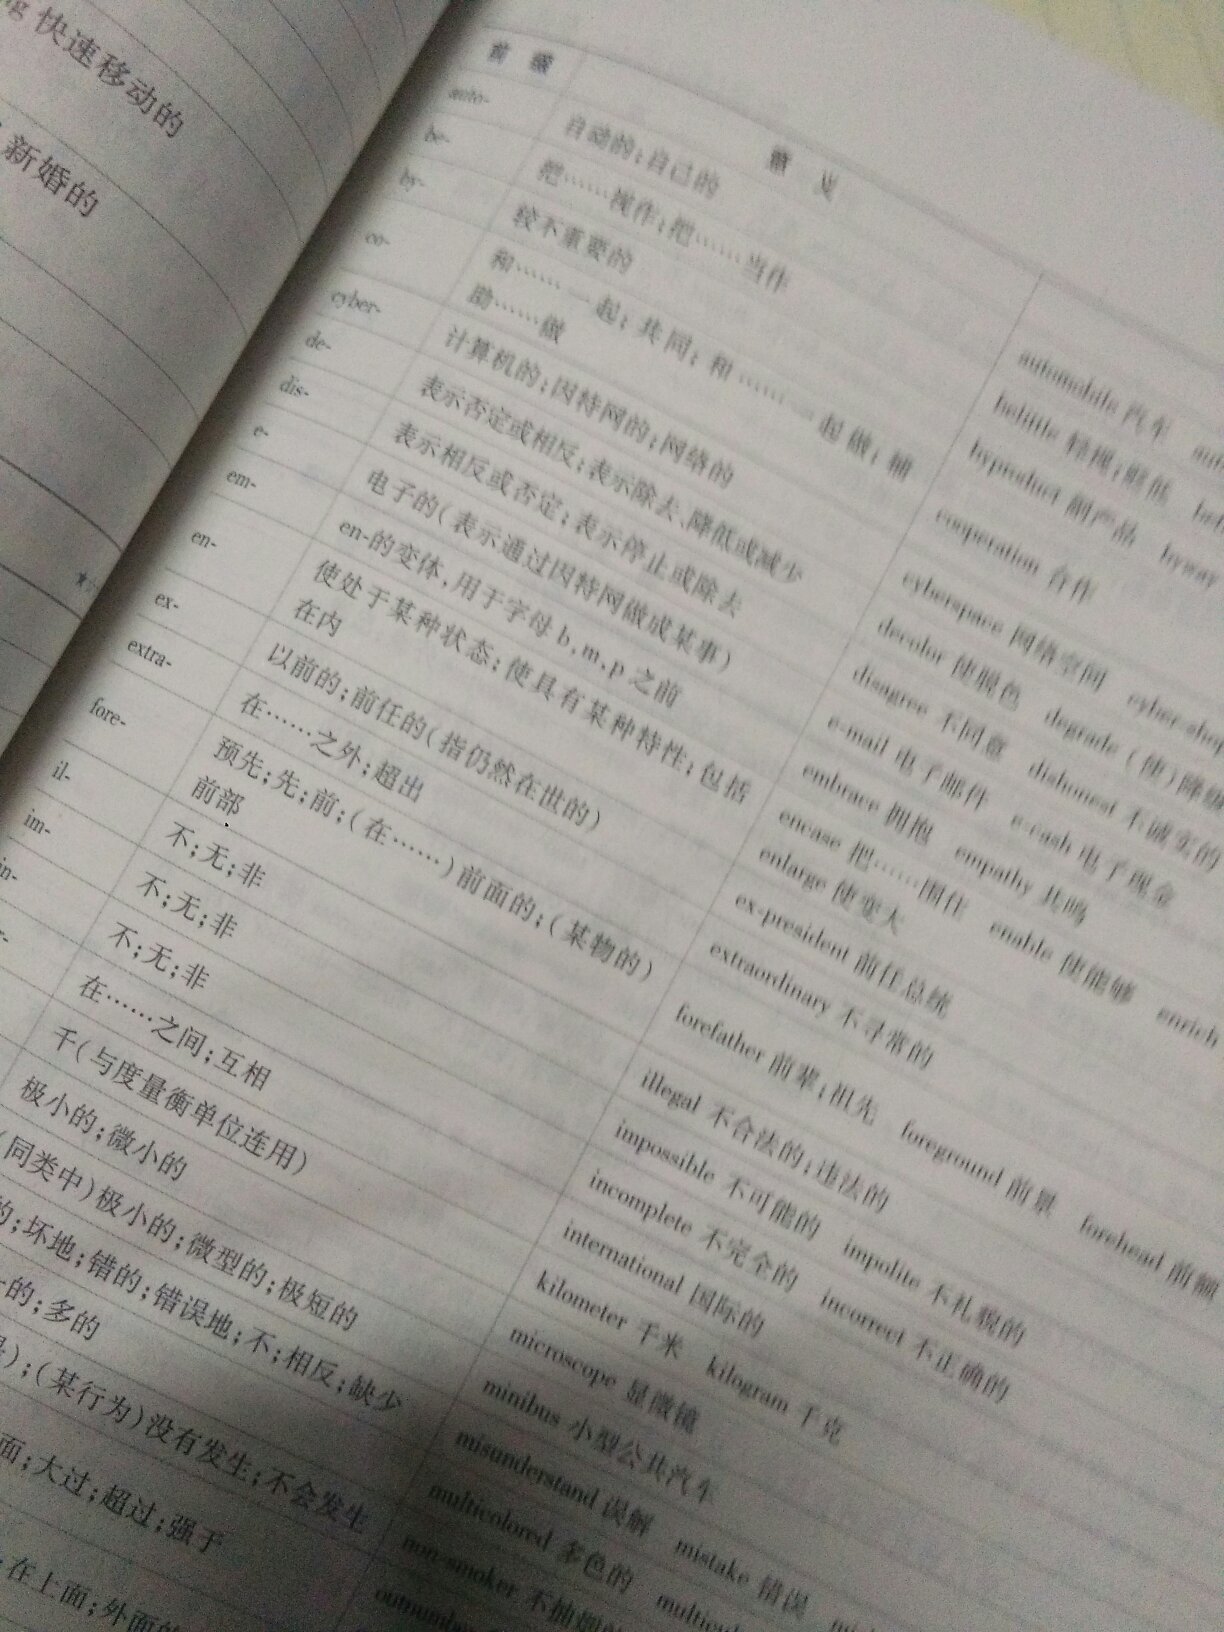 快速移动的
新婚的
前 缀 意 义
auto- 自动的；自己的 automobile 汽车
be- 把……视作；把……当作 belittle 轻视；贬低
by- 较不重要的 byproduct 副产品 byway
co- 和……一起；共同；和……一起做；辅 cooperation 合作
助……做
cyber- 计算机的；因特网的；网络的 cyberspace 网络空间 cyber-shop
de- 表示否定或相反；表示除去、降低或减少 decolor 使脱色 degrade (使)降级
dis- 表示相反或否定；表示停止或除去 disagree 不同意 dishonest 不诚实的
e- 电子的(表示通过因特网做成某事) e-mail 电子邮件 e-cash 电子现金
em- en-的变体，用于字母 b,m,p 之前 embrace 拥抱 empathy 共鸣
en- 使处于某种状态；使具有某种特性；包括 encase 把……围住 enable 使能够 enrich
在内 enlarge 使变大
ex- 以前的；前任的(指仍然在世的) ex-president 前任总统
extra- 在……之外；超出 extraordinary 不寻常的
fore- 预先；先；前；(在……)前面的；(某物的) forefather 前辈；祖先 foreground 前景 forehead 前额
前部
il- 不；无；非 illegal 不合法的；违法的
im- 不；无；非 impossible 不可能的 impolite 不礼貌的
in- 不；无；非 incomplete 不完全的 incorrect 不正确的
在……之间；互相 international 国际的
千(与度量衡单位连用) kilometer 千米 kilogram 千克
极小的；微小的 microscope 显微镜
(同类中)极小的；微型的；极短的 minibus 小型公共汽车
的；坏地；错的；错误地；不；相反；缺少 misunderstand 误解 mistake 错误
的；多的 multicolored 多色的
)；(某行为)没有发生；不会发生 non-smoker 不抽烟的
面；大过；超过；强于
在上面；外面的